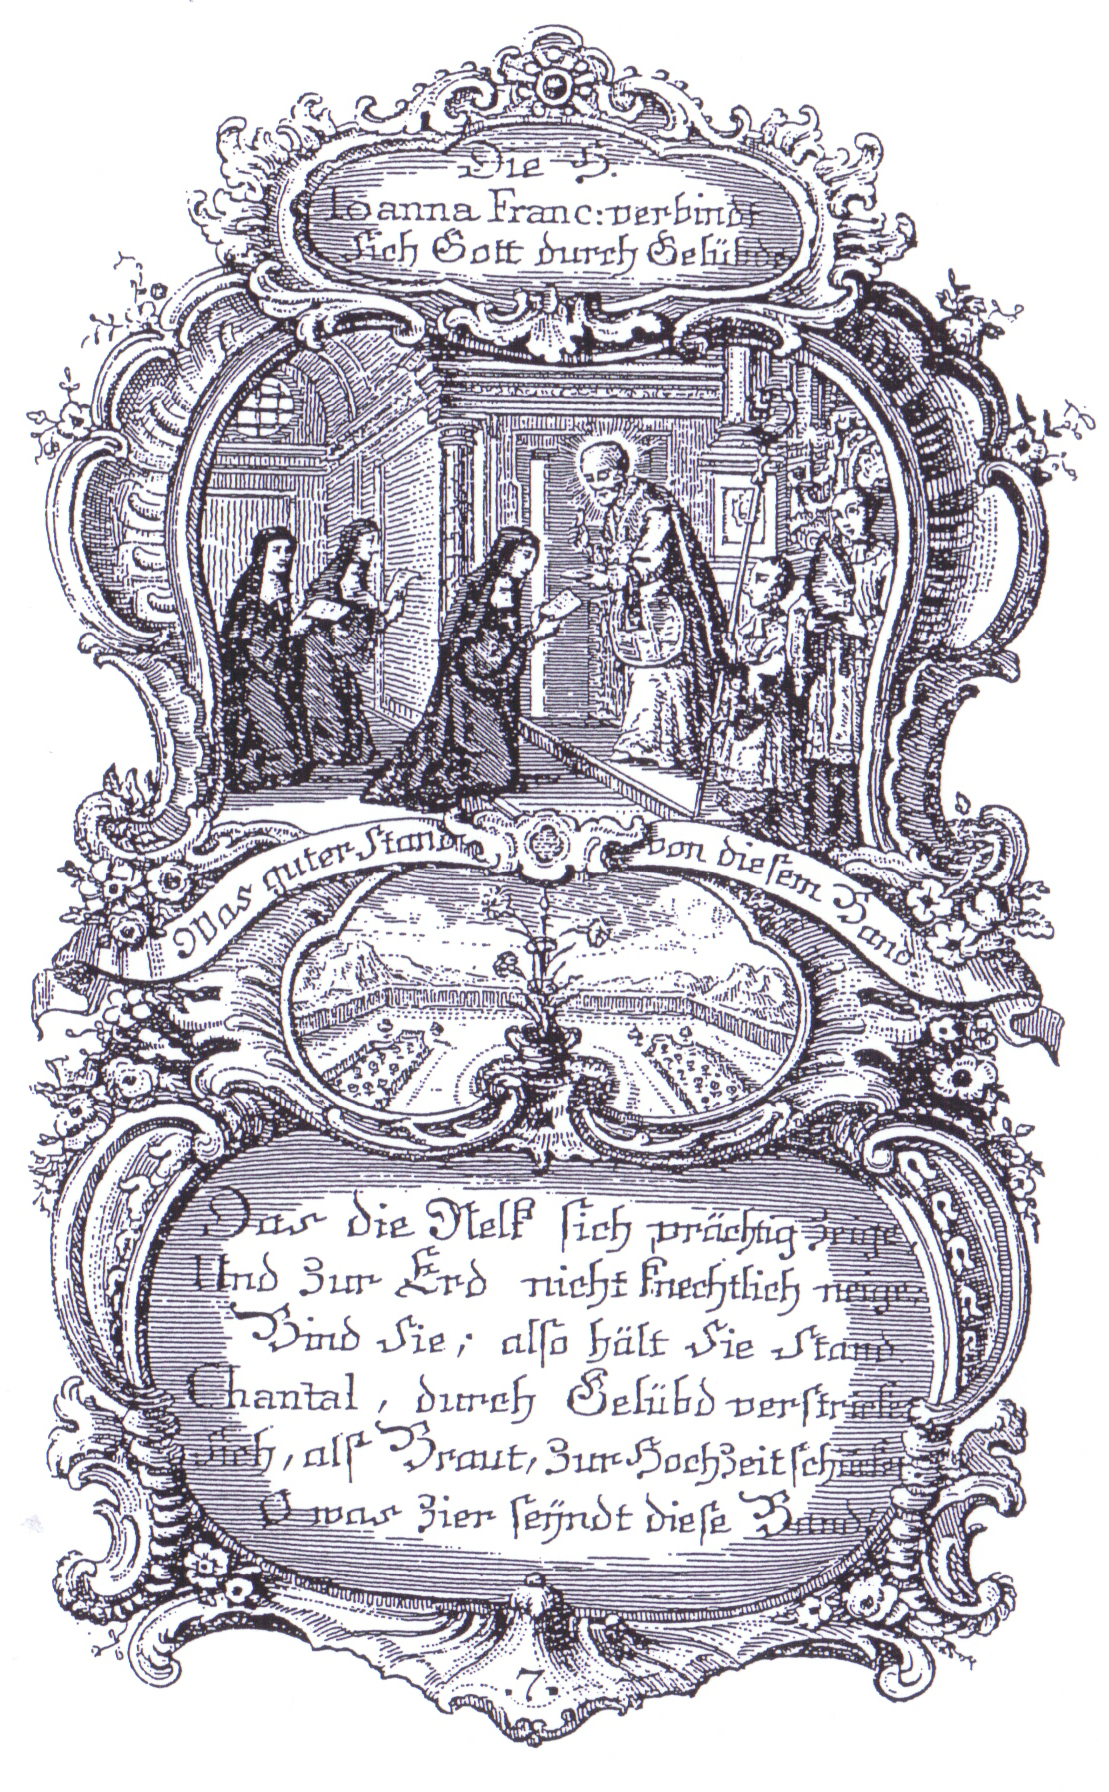 Die H.
Ioanna Franc: verbindt
sich Gott durch Gelübde
Was guter Stand
von diesem Band
Das die Nelk sich prächtig zeige,
Und zur Erd nicht knechtlich neige:
Bind Sie; also hält Sie Stand.
Chantal, durch Gelübd verstricket
Sich, alß Braut, zur Hochzeit schicket
O was zier seÿndt diese Band!
.7.